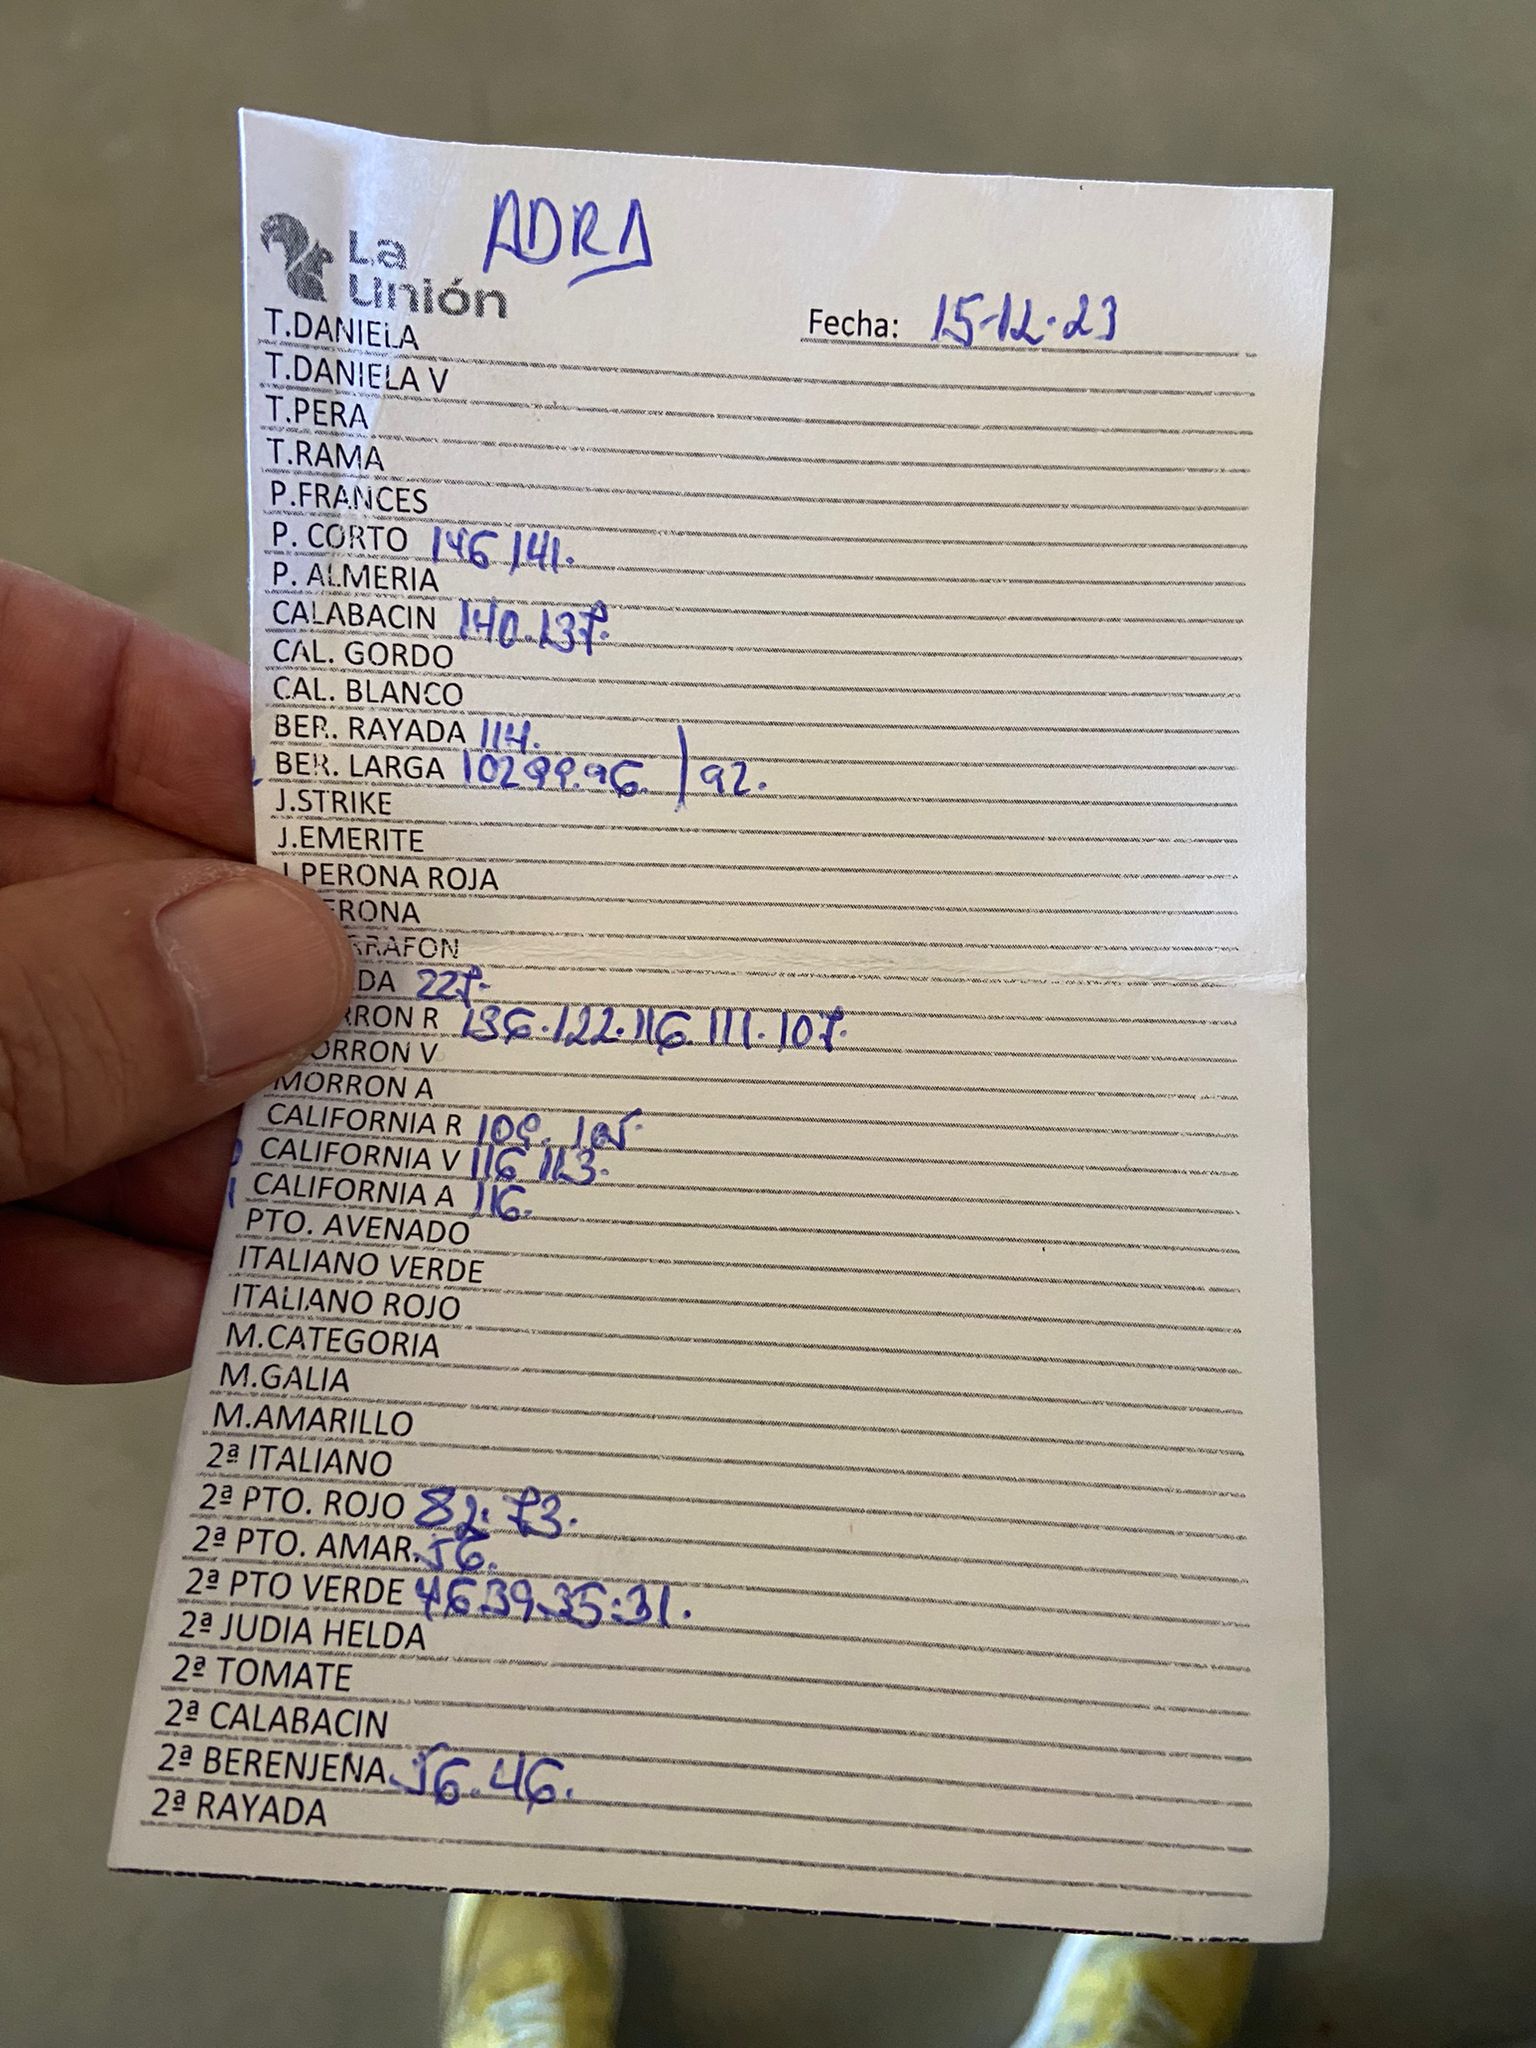 ADRA
La
Unión
Fecha: 15-12-23
T.DANIELA
T.DANIELA V
T.PERA
T.RAMA
P.FRANCES
P. CORTO 146 141.
P. ALMERIA
CALABACIN 140.137.
CAL. GORDO
CAL. BLANCO
BER. RAYADA 114.
BER. LARGA 102 99.96. / 92.
J.STRIKE
J.EMERITE
J.PERONA ROJA
ERONA
RRAFON
DA 227.
RRON R 136.122.116.111.107.
ORRON V
MORRON A
CALIFORNIA R 109. 105.
CALIFORNIA V 116 113.
CALIFORNIA A 116.
PTO. AVENADO
ITALIANO VERDE
ITALIANO ROJO
M.CATEGORIA
M.GALIA
M.AMARILLO
2ª ITALIANO
2ª PTO. ROJO 82. 73.
2ª PTO. AMAR. 56.
2ª PTO VERDE 46.39.35.31.
2ª JUDIA HELDA
2ª TOMATE
2ª CALABACIN
2ª BERENJENA 56.46.
2ª RAYADA